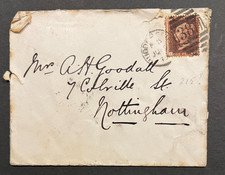 Mrs A. H. Goodall
7 Colville St
Nottingham